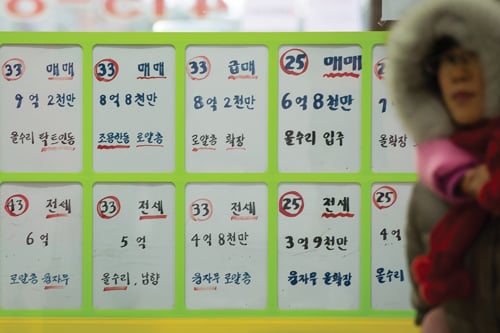 33 매매
9억 2천만
올수리 탁트인동
33 매매
8억 8천만
조용한동 로얄층
33 급매
8억 2천만
로얄층 확장
25 매매
6억 8천만
올수리 입주
25
7
올확장
43 전세
6억
로얄층 융자무
33 전세
5억
올수리, 남향
33 전세
4억 8천만
융자무 로얄층
25 전세
3억 9천만
융자무 올확장
25
4억
올수